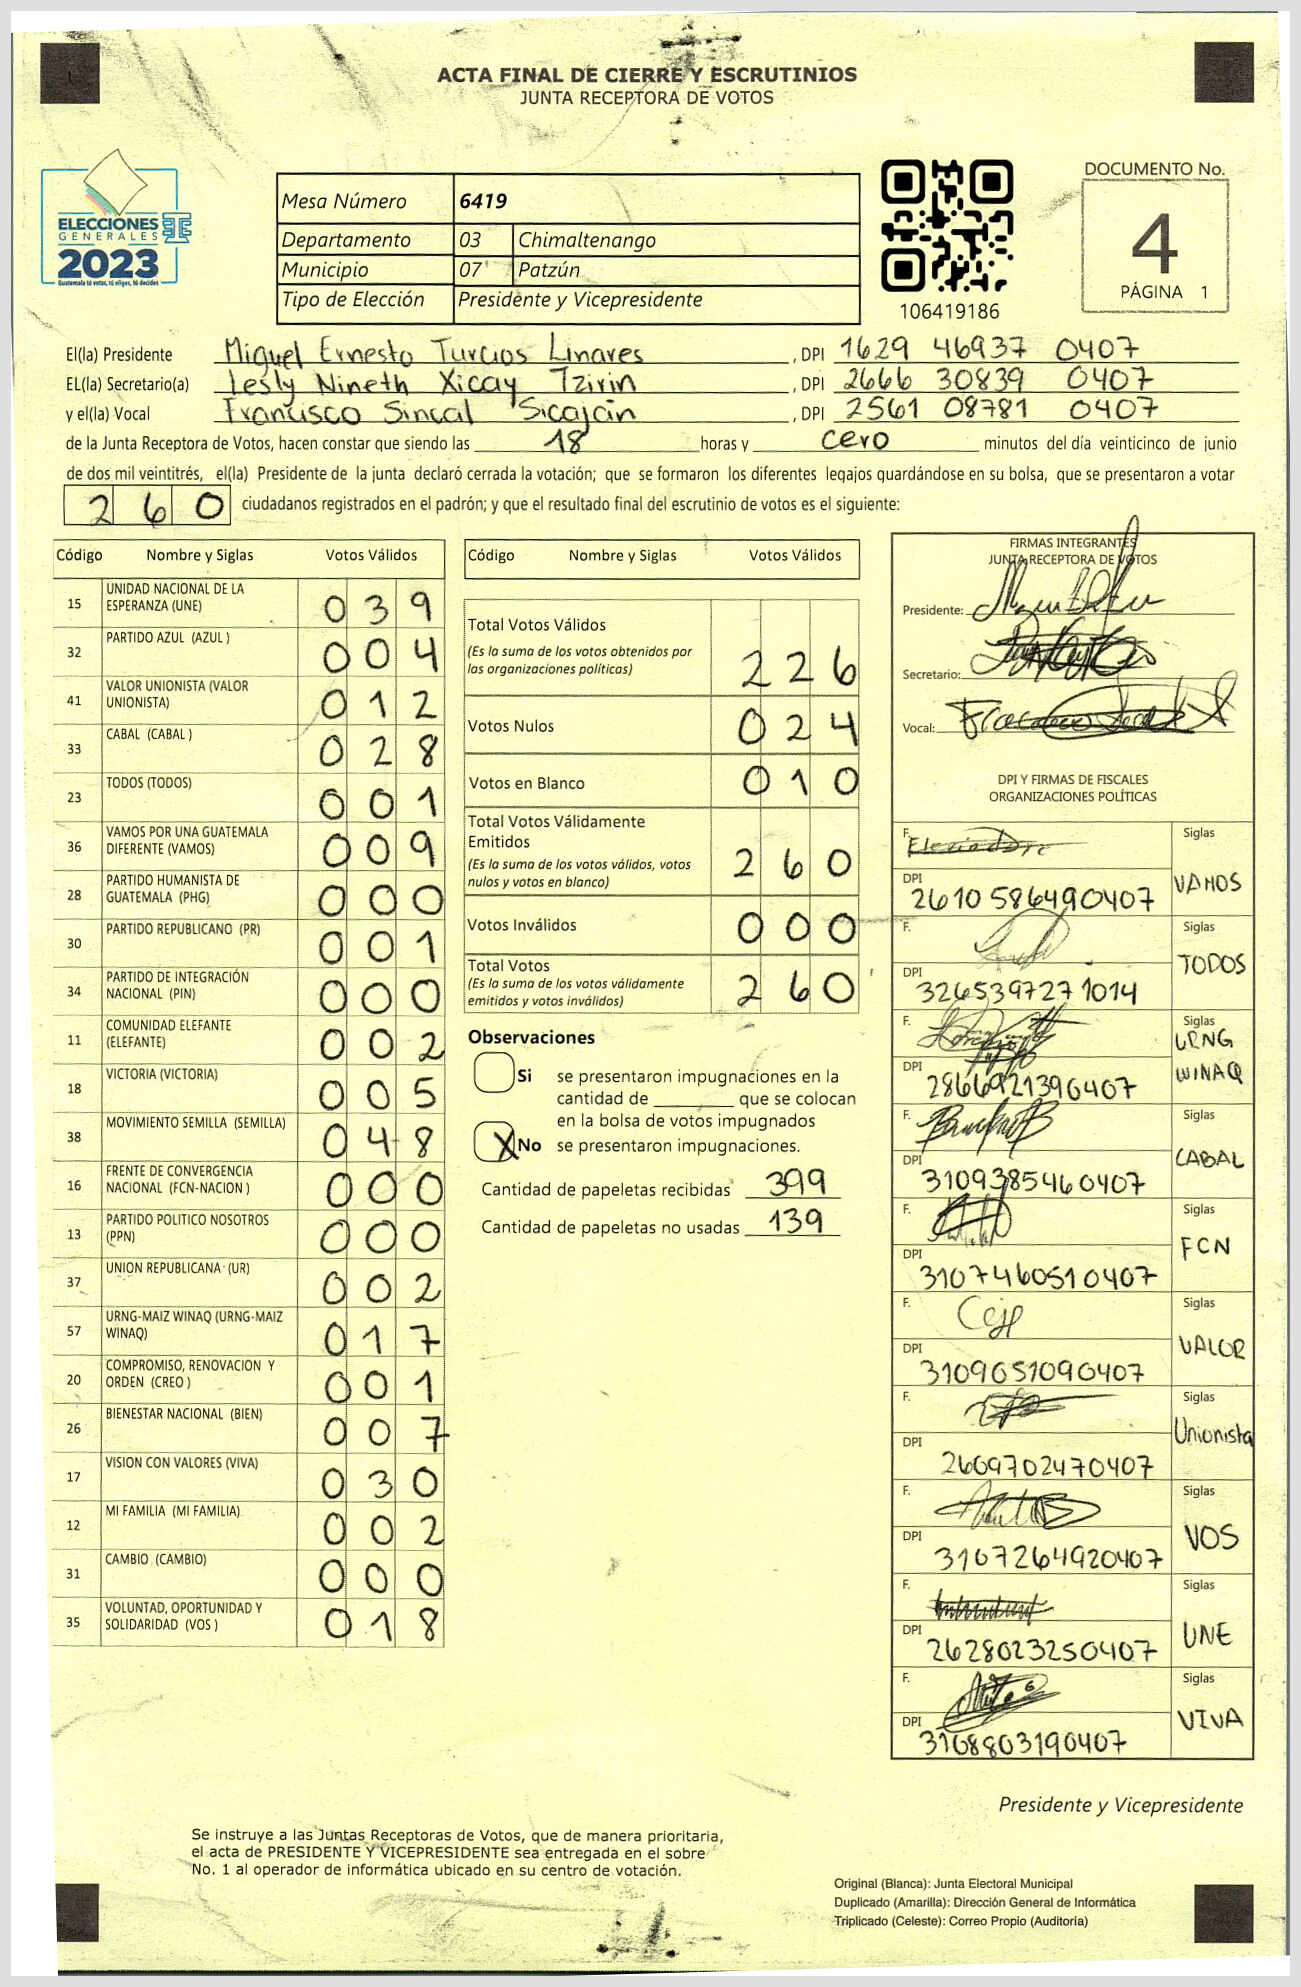 ACTA FINAL DE CIERRE Y ESCRUTINIOS
JUNTA RECEPTORA DE VOTOS
ELECCIONES
GENERALES
2023
Guatemala tú votas, tú eliges, tú decides
TSE
Mesa Número 6419
Departamento 03 Chimaltenango
Municipio 07 Patzún
Tipo de Elección Presidente y Vicepresidente
106419186
DOCUMENTO No.
4
PÁGINA 1
El(la) Presidente Miguel Ernesto Turcios Linares , DPI 1629 46937 0407
EL(la) Secretario(a) Lesly Nineth Xicay Tzirin , DPI 2666 30839 0407
y el(la) Vocal Francisco Sincal Sicajan , DPI 2561 08781 0407
de la Junta Receptora de Votos, hacen constar que siendo las 18 horas y cero minutos del día veinticinco de junio
de dos mil veintitrés, el(la) Presidente de la junta declaró cerrada la votación; que se formaron los diferentes legajos guardándose en su bolsa, que se presentaron a votar
260 ciudadanos registrados en el padrón; y que el resultado final del escrutinio de votos es el siguiente:
Código Nombre y Siglas Votos Válidos
15 UNIDAD NACIONAL DE LA
ESPERANZA (UNE) 039
32 PARTIDO AZUL (AZUL ) 004
41 VALOR UNIONISTA (VALOR
UNIONISTA) 012
33 CABAL (CABAL ) 028
23 TODOS (TODOS) 001
36 VAMOS POR UNA GUATEMALA
DIFERENTE (VAMOS) 009
28 PARTIDO HUMANISTA DE
GUATEMALA (PHG) 000
30 PARTIDO REPUBLICANO (PR) 001
34 PARTIDO DE INTEGRACIÓN
NACIONAL (PIN) 000
11 COMUNIDAD ELEFANTE
(ELEFANTE) 002
18 VICTORIA (VICTORIA) 005
38 MOVIMIENTO SEMILLA (SEMILLA) 048
16 FRENTE DE CONVERGENCIA
NACIONAL (FCN-NACION ) 000
13 PARTIDO POLITICO NOSOTROS
(PPN) 000
37 UNION REPUBLICANA (UR) 002
57 URNG-MAIZ WINAQ (URNG-MAIZ
WINAQ) 017
20 COMPROMISO, RENOVACION Y
ORDEN (CREO ) 001
26 BIENESTAR NACIONAL (BIEN) 007
17 VISION CON VALORES (VIVA) 030
12 MI FAMILIA (MI FAMILIA) 002
31 CAMBIO (CAMBIO) 000
35 VOLUNTAD, OPORTUNIDAD Y
SOLIDARIDAD (VOS ) 018
Código Nombre y Siglas Votos Válidos
Total Votos Válidos
(Es la suma de los votos obtenidos por
las organizaciones políticas) 226
Votos Nulos 024
Votos en Blanco 010
Total Votos Válidamente
Emitidos
(Es la suma de los votos válidos, votos
nulos y votos en blanco) 260
Votos Inválidos 000
Total Votos
(Es la suma de los votos válidamente
emitidos y votos inválidos) 260
Observaciones
Si se presentaron impugnaciones en la
cantidad de ________ que se colocan
en la bolsa de votos impugnados
X No se presentaron impugnaciones.
Cantidad de papeletas recibidas 399
Cantidad de papeletas no usadas 139
FIRMAS INTEGRANTES
JUNTA RECEPTORA DE VOTOS
Presidente:
Secretario:
Vocal:
DPI Y FIRMAS DE FISCALES
ORGANIZACIONES POLÍTICAS
F. Siglas
DPI 2610586490407 VAMOS
F. Siglas
DPI 3265397271014 TODOS
F. Siglas
URNG
DPI 2866921390407 WINAQ
F. Siglas
DPI 3109385460407 CABAL
F. Siglas
DPI 3107460510407 FCN
F. Siglas
DPI 3109651090407 VALOR
F. Siglas
DPI 2609702470407 Unionista
F. Siglas
DPI 3167264920407 VOS
F. Siglas
DPI 2628023250407 UNE
F. Siglas
DPI 3108803190407 VIVA
Presidente y Vicepresidente
Se instruye a las Juntas Receptoras de Votos, que de manera prioritaria,
el acta de PRESIDENTE Y VICEPRESIDENTE sea entregada en el sobre
No. 1 al operador de informática ubicado en su centro de votación.
Original (Blanca): Junta Electoral Municipal
Duplicado (Amarilla): Dirección General de Informática
Triplicado (Celeste): Correo Propio (Auditoría)